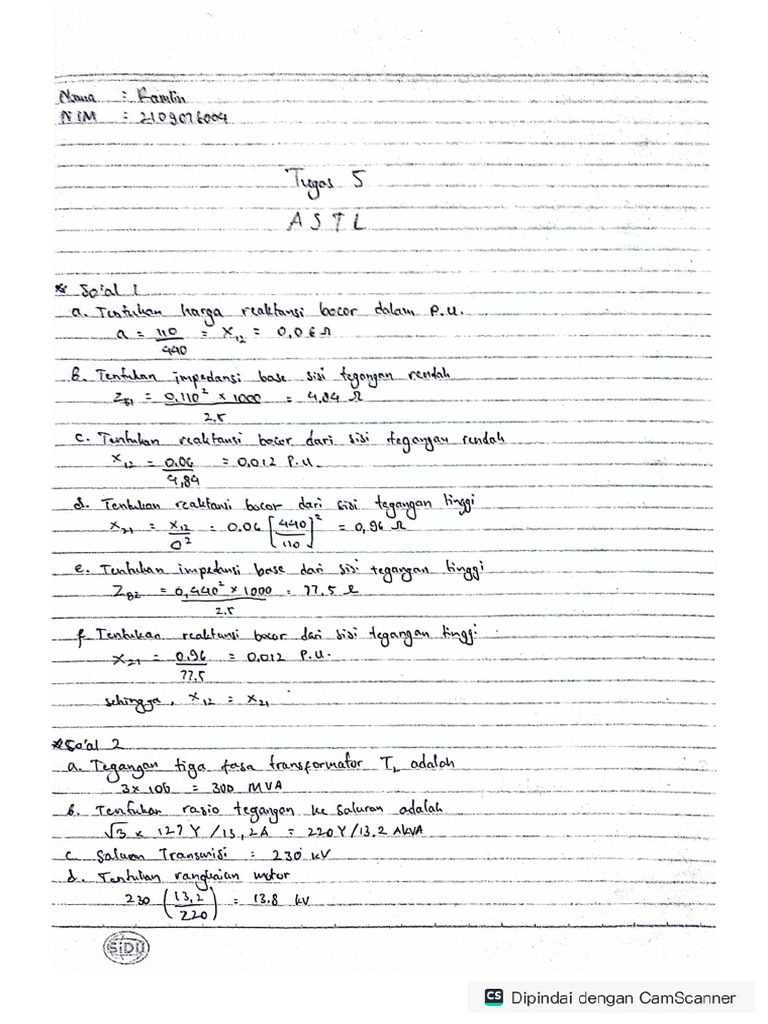 Nama : Ramlin
NIM : 2109076004
Tugas 5
ASTL
* Soal 1
a. Tentukan harga reaktansi bocor dalam P.U.
a = 110/440 = X12 = 0,06 Ω
b. Tentukan impedansi base sisi tegangan rendah
ZB1 = 0.110² x 1000 / 2.5 = 4,84 Ω
c. Tentukan reaktansi bocor dari sisi tegangan rendah
X12 = 0.06/4,84 = 0.012 P.U.
d. Tentukan reaktansi bocor dari sisi tegangan tinggi
X21 = X12/a² = 0.06 [440/110]² = 0,96 Ω
e. Tentukan impedansi base dari sisi tegangan tinggi
ZB2 = 0,440² x 1000 / 2.5 = 77.5 Ω
f. Tentukan reaktansi bocor dari sisi tegangan tinggi
X21 = 0.96/77.5 = 0.012 P.U.
sehingga, X12 = X21
* Soal 2
a. Tegangan tiga fasa transformator T2 adalah
3 x 100 = 300 MVA
b. Tentukan rasio tegangan ke saluran adalah
√3 x 127 Y / 13,2 Δ = 220 Y / 13.2 Δ kVA
c. Saluran Transmisi = 230 kV
d. Tentukan rangkaian motor
230 (13,2/220) = 13.8 kV
SIDU
CS Dipindai dengan CamScanner